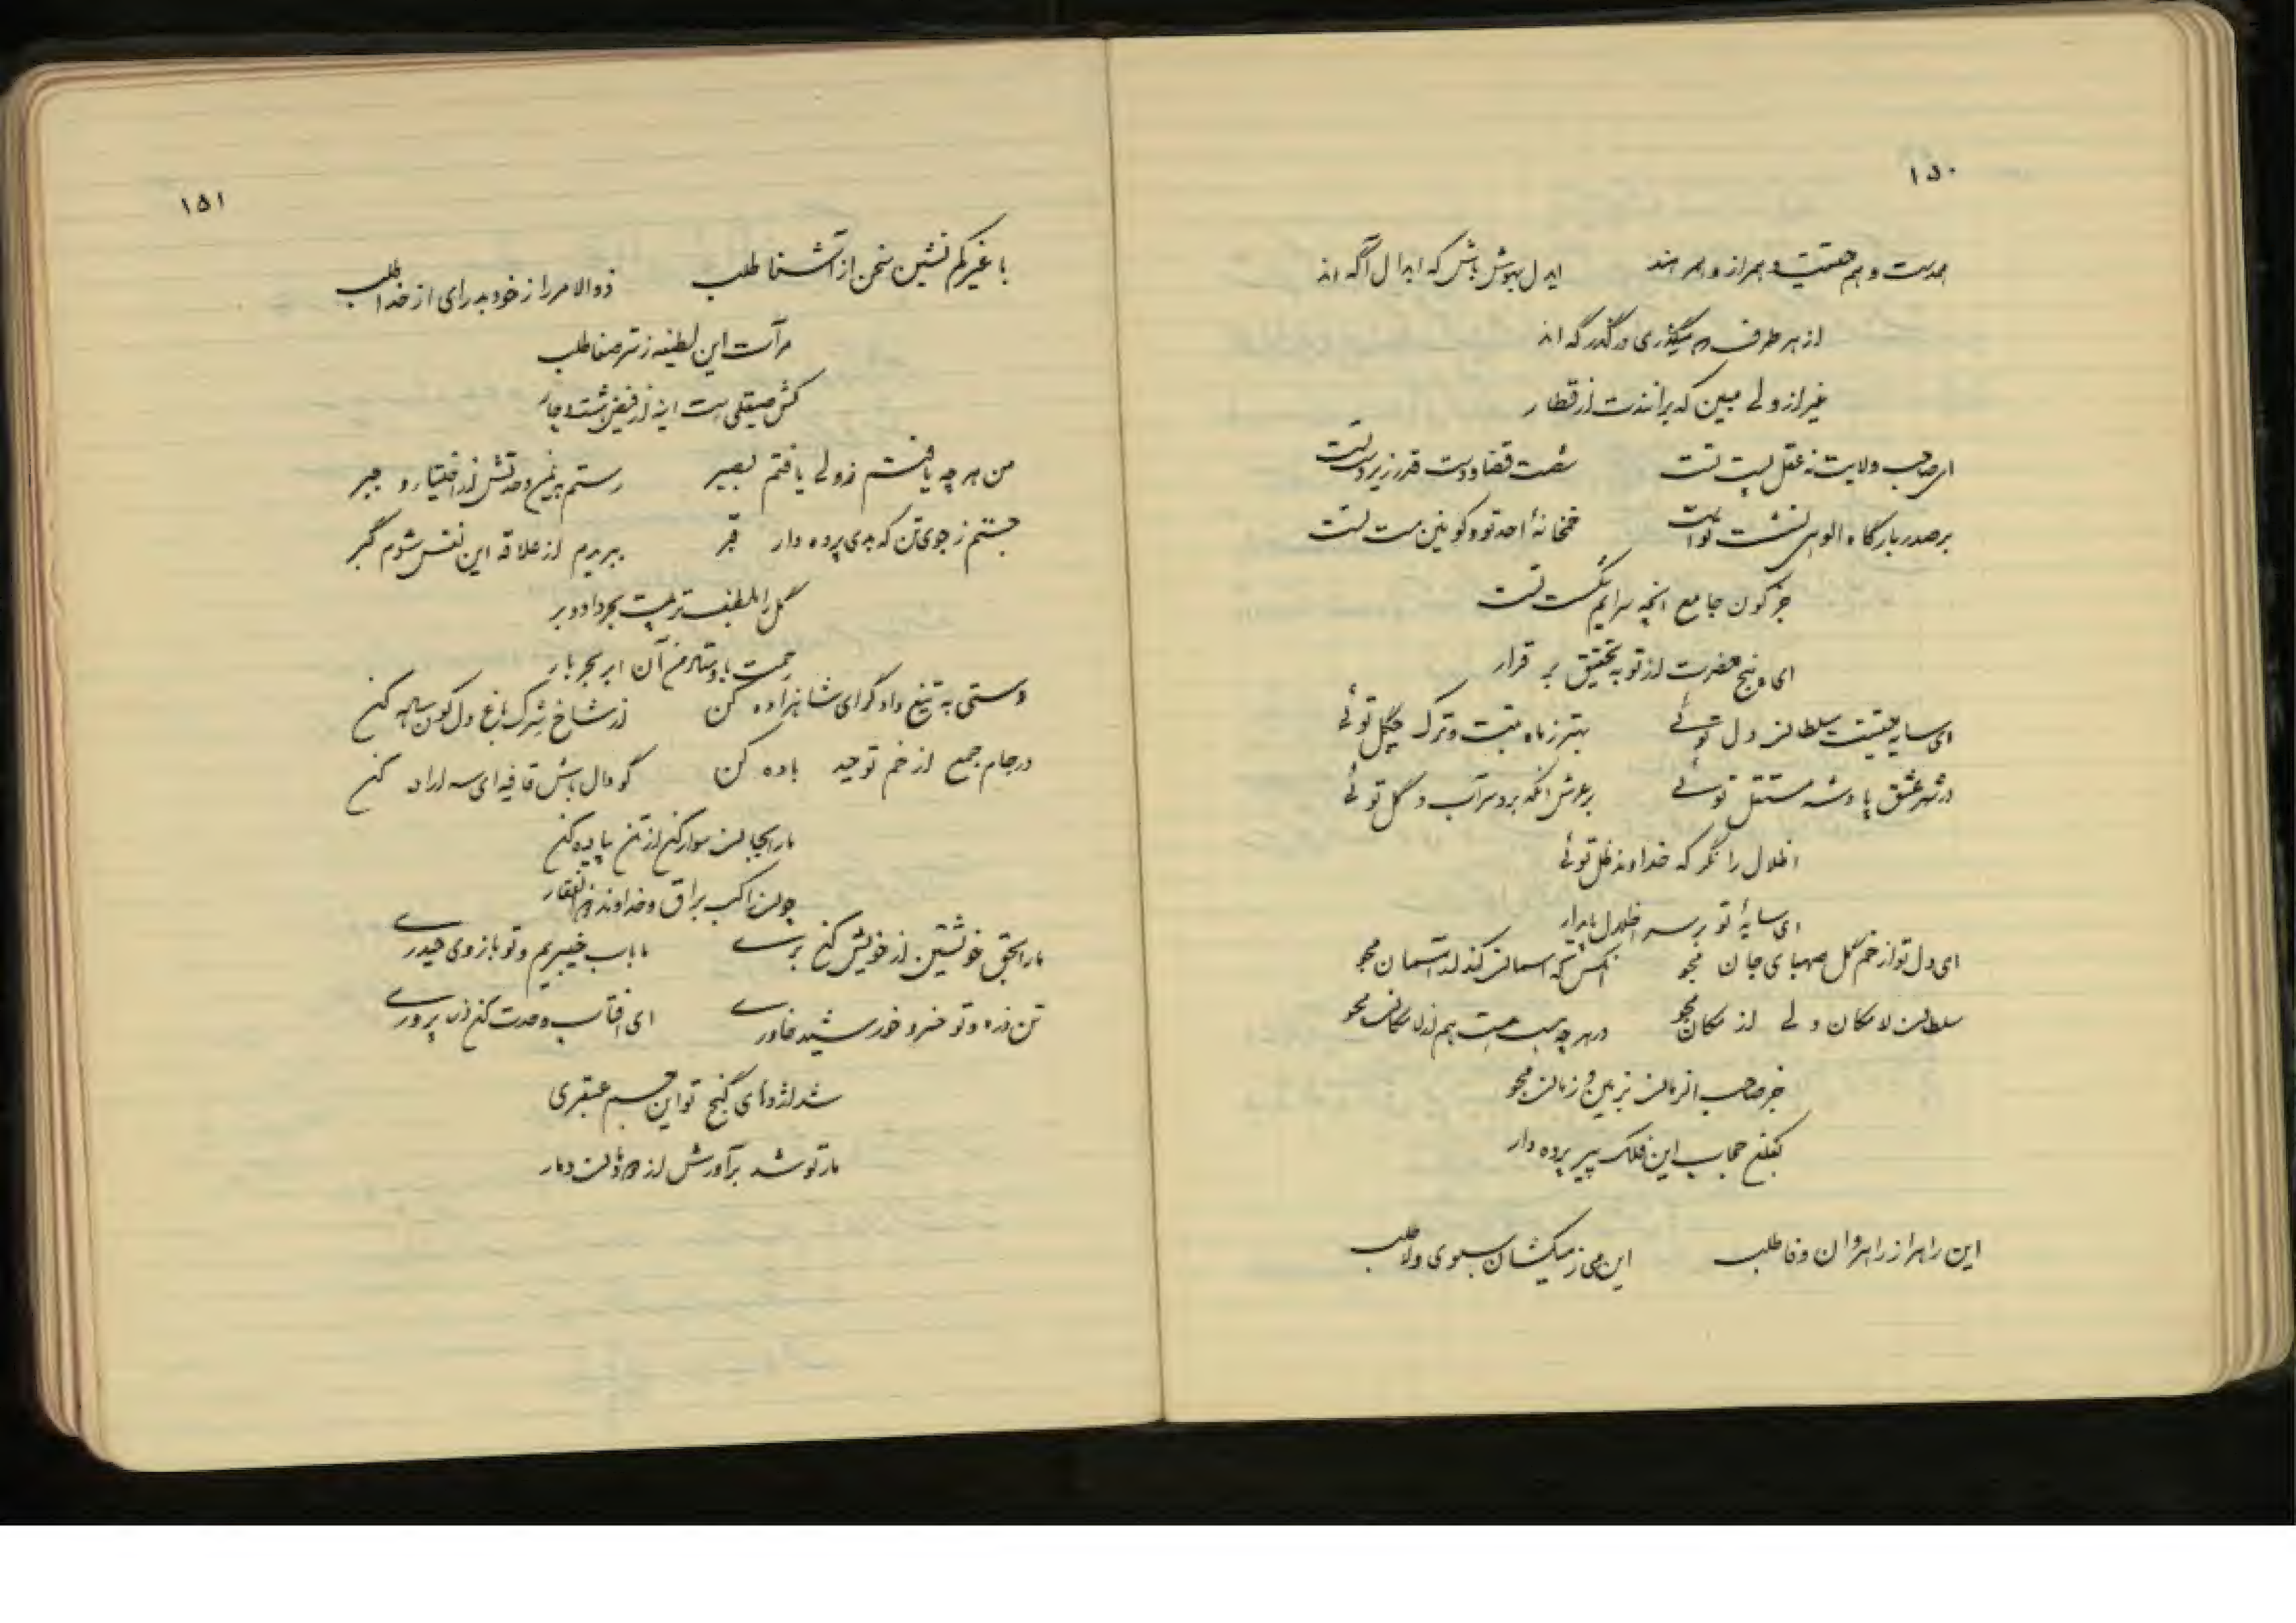 ۱۵۰
ایدل بهوش باش که ابدال آگه اند
از هر طرف که میگذری در گذرگه اند
غیر از ولی مبین که برانندت از قطار
ای صاحب ولایت نه عقل پست تست شصت قضا و دست قدر زیر دست تست
بر صدر بارگاه الوهی نشست تست خمخانهٔ احد تو و کونین مست تست
جز کون جامع آنچه سرایم شکست تست
ای پنج حضرت از تو به تحقیق بر قرار
ای سایه حقیقت سلطان دل توئی بهتر ز ماه تبت و ترک چگل توئی
در شهر عشق پادشه مستقل توئی بر عرش آنکه برد سر آب و گل توئی
اظلال را نگر که خداوند ظل توئی
ای سایهٔ تو بر سر اظلال پایدار
ای دل تو از خم گل صهبای جان مجو
سلطان لامکان ولی از مکان مجو در هر چه هست هست هم از لامکان مجو
جز صاحب الزمان ز زمین و زمان مجو
بفکن حجاب این فلک پیر پرده دار
این راه را ز راهروان وفا طلب این می ز میکشان سبوی ولا طلب
۱۵۱
با غیر کم نشین سخن از آشنا طلب ذوالامر را ز خود بدرای از خدا طلب
مرآت این لطیفه ز سر صفا طلب
کش صیقلی است این از فیض هشت و چار
من هر چه یافتم ز ولی یافتم بصیر رستم بیمن وحدتش از اختیار و جبر
جستم ز جوی تن که بدی پرده دار قبر ببریدم از علاقه این نفس شوم گبر
گل را بلطف تربیت بحر داد و بر
رحمت باوستاد من آن ابر بحر بار
دستی به تیغ داد گر ای شاهزاده کن از شاخ شرک باغ دل کون ساده کن
در جام جمع از خم توحید باده کن گو دال باش قافیه ای سه اراده کن
ما را بجان سوار کن از تن پیاده کن
چون راکب براق و خداوند ذوالفقار
ما را بحق خویشتن از خویش کن بری ما باب خیبریم و تو بازوی حیدری
تن ذره و تو خسرو خورشید خاوری ای آفتاب وحدت کن ذره پروری
شد اژدهای گنج تو این جسم عبقری
مار تو شد برآورش از دودمان دمار